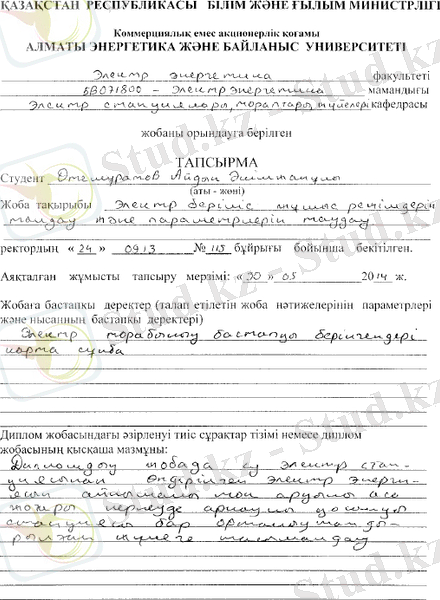 ҚАЗАҚСТАН РЕСПУБЛИКАСЫ БІЛІМ ЖӘНЕ ҒЫЛЫМ МИНИСТРЛІГІ
Коммерциялық емес акционерлік қоғамы
АЛМАТЫ ЭНЕРГЕТИКА ЖӘНЕ БАЙЛАНЫС УНИВЕРСИТЕТІ
Электр энергетика факультеті
5В071800 – Электр энергетика мамандығы
Электр станциялары, тораптары, жүйелері кафедрасы
жобаны орындауга берілген
ТАПСЫРМА
Студент Өтемұратов Айдын
(аты - жөні)
Жоба тақырыбы Электр беріліс жұмыс режімдерін
таңдау және параметрлерін таңдау
ректордың « 24 » 0913 № 115 бұйрығы бойынша бекітілген.
Аяқталған жұмысты тапсыру мерзімі: « 20 » 05 2014 ж.
Жобаға бастапқы деректер (талап етілетін жоба нәтижелерінің параметрлері
және нысанның бастапқы деректері)
Электр торабының бастапқы берілгендері
карта сұлба
Диплом жобасындағы әзірленуі тиіс сұрақтар тізімі немесе диплом
жобасының қысқаша мазмұны:
Дипломдық жобада су электр стан-
циясынан өндірілген электр энерги-
ясын айнымалы ток арқылы аса
жоғары кернеуде аралық қосылу
станциясы бар орталықтанды-
рылған жүйеге тасымалдау
Stud.kz - Stud.kz